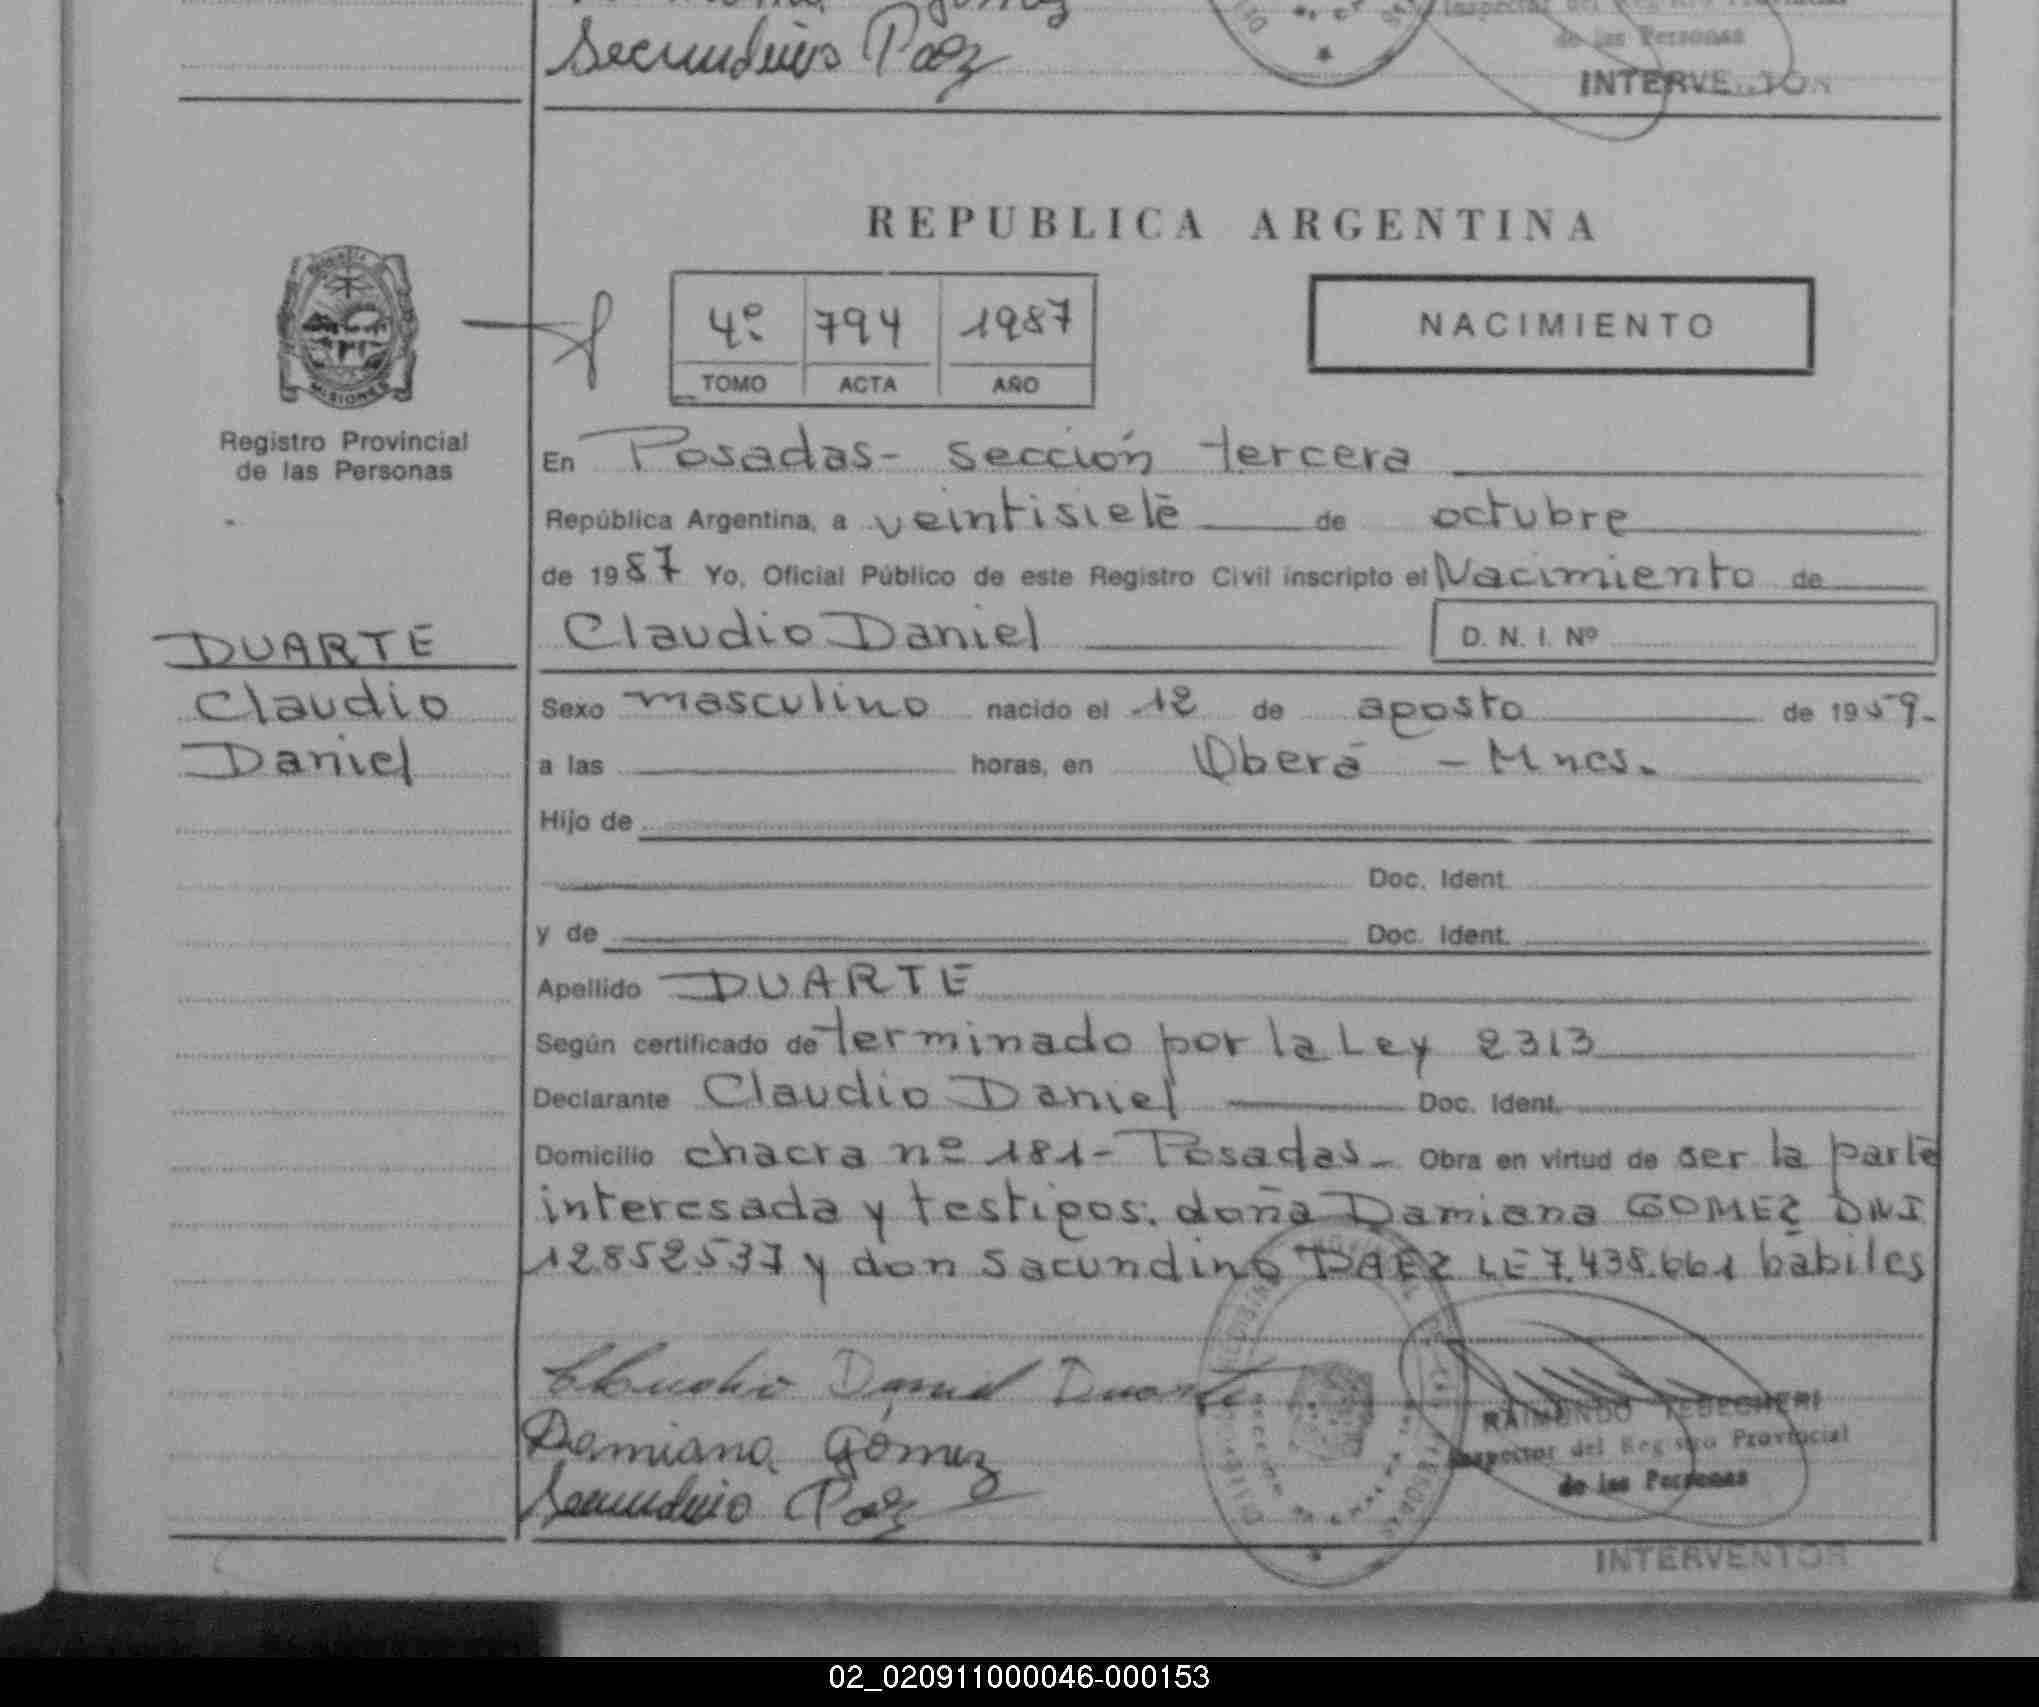 Secundino Paez
de las Personas
INTERVENTOR
REPUBLICA ARGENTINA
MISIONES
4º 794 1987
TOMO ACTA AÑO
NACIMIENTO
Registro Provincial
de las Personas
En Posadas - sección tercera
República Argentina, a veintisiete de octubre
de 1987 Yo, Oficial Público de este Registro Civil inscripto el Nacimiento de
Claudio Daniel D. N. I. Nº
DUARTE
Claudio
Daniel
Sexo masculino nacido el 12 de agosto de 1959.-
a las horas, en Oberá - Mnes.
Hijo de
Doc. Ident.
y de Doc. Ident.
Apellido DUARTE
Según certificado de terminado por la Ley 2313
Declarante Claudio Daniel Doc. Ident.
Domicilio chacra nº 181 - Posadas - Obra en virtud de ser la parte
interesada y testigos: doña Damiana GOMEZ DNI
12852537 y don Sacundino PAEZ LE 7.438.661 hábiles
Claudio Daniel Duarte
Damiana Gómez
Secundino Paez
RAIMUNDO
Inspector del Registro Provincial
de las Personas
INTERVENTOR
02_020911000046-000153